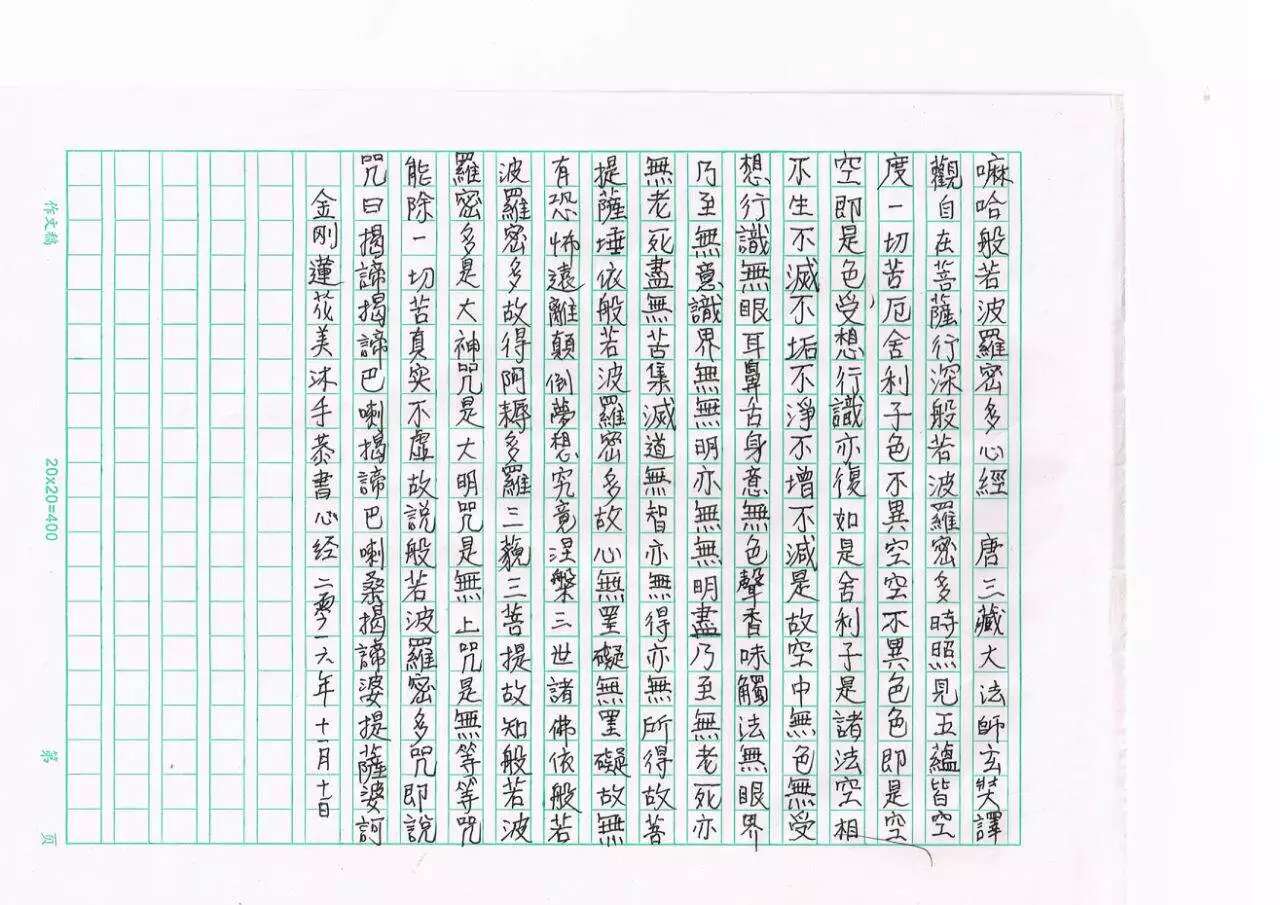 嘛哈般若波羅密多心經　唐三藏大法師玄奘譯
觀自在菩薩行深般若波羅密多時照見五蘊皆空
度一切苦厄舍利子色不異空空不異色色即是空
空即是色受想行識亦復如是舍利子是諸法空相
不生不滅不垢不淨不增不減是故空中無色無受
想行識無眼耳鼻舌身意無色聲香味觸法無眼界
乃至無意識界無無明亦無無明盡乃至無老死亦
無老死盡無苦集滅道無智亦無得亦無所得故菩
提薩埵依般若波羅密多故心無罣礙無罣礙故無
有恐怖遠離顛倒夢想究竟涅槃三世諸佛依般若
波羅密多故得阿耨多羅三藐三菩提故知般若波
羅密多是大神咒是大明咒是無上咒是無等等咒
能除一切苦真实不虛故説般若波羅密多咒即説
咒曰揭諦揭諦巴喇揭諦巴喇桑揭諦婆提薩婆訶
金刚蓮花美沐手恭書心经二零一六年十一月十一日
作文稿
20x20=400
第 页